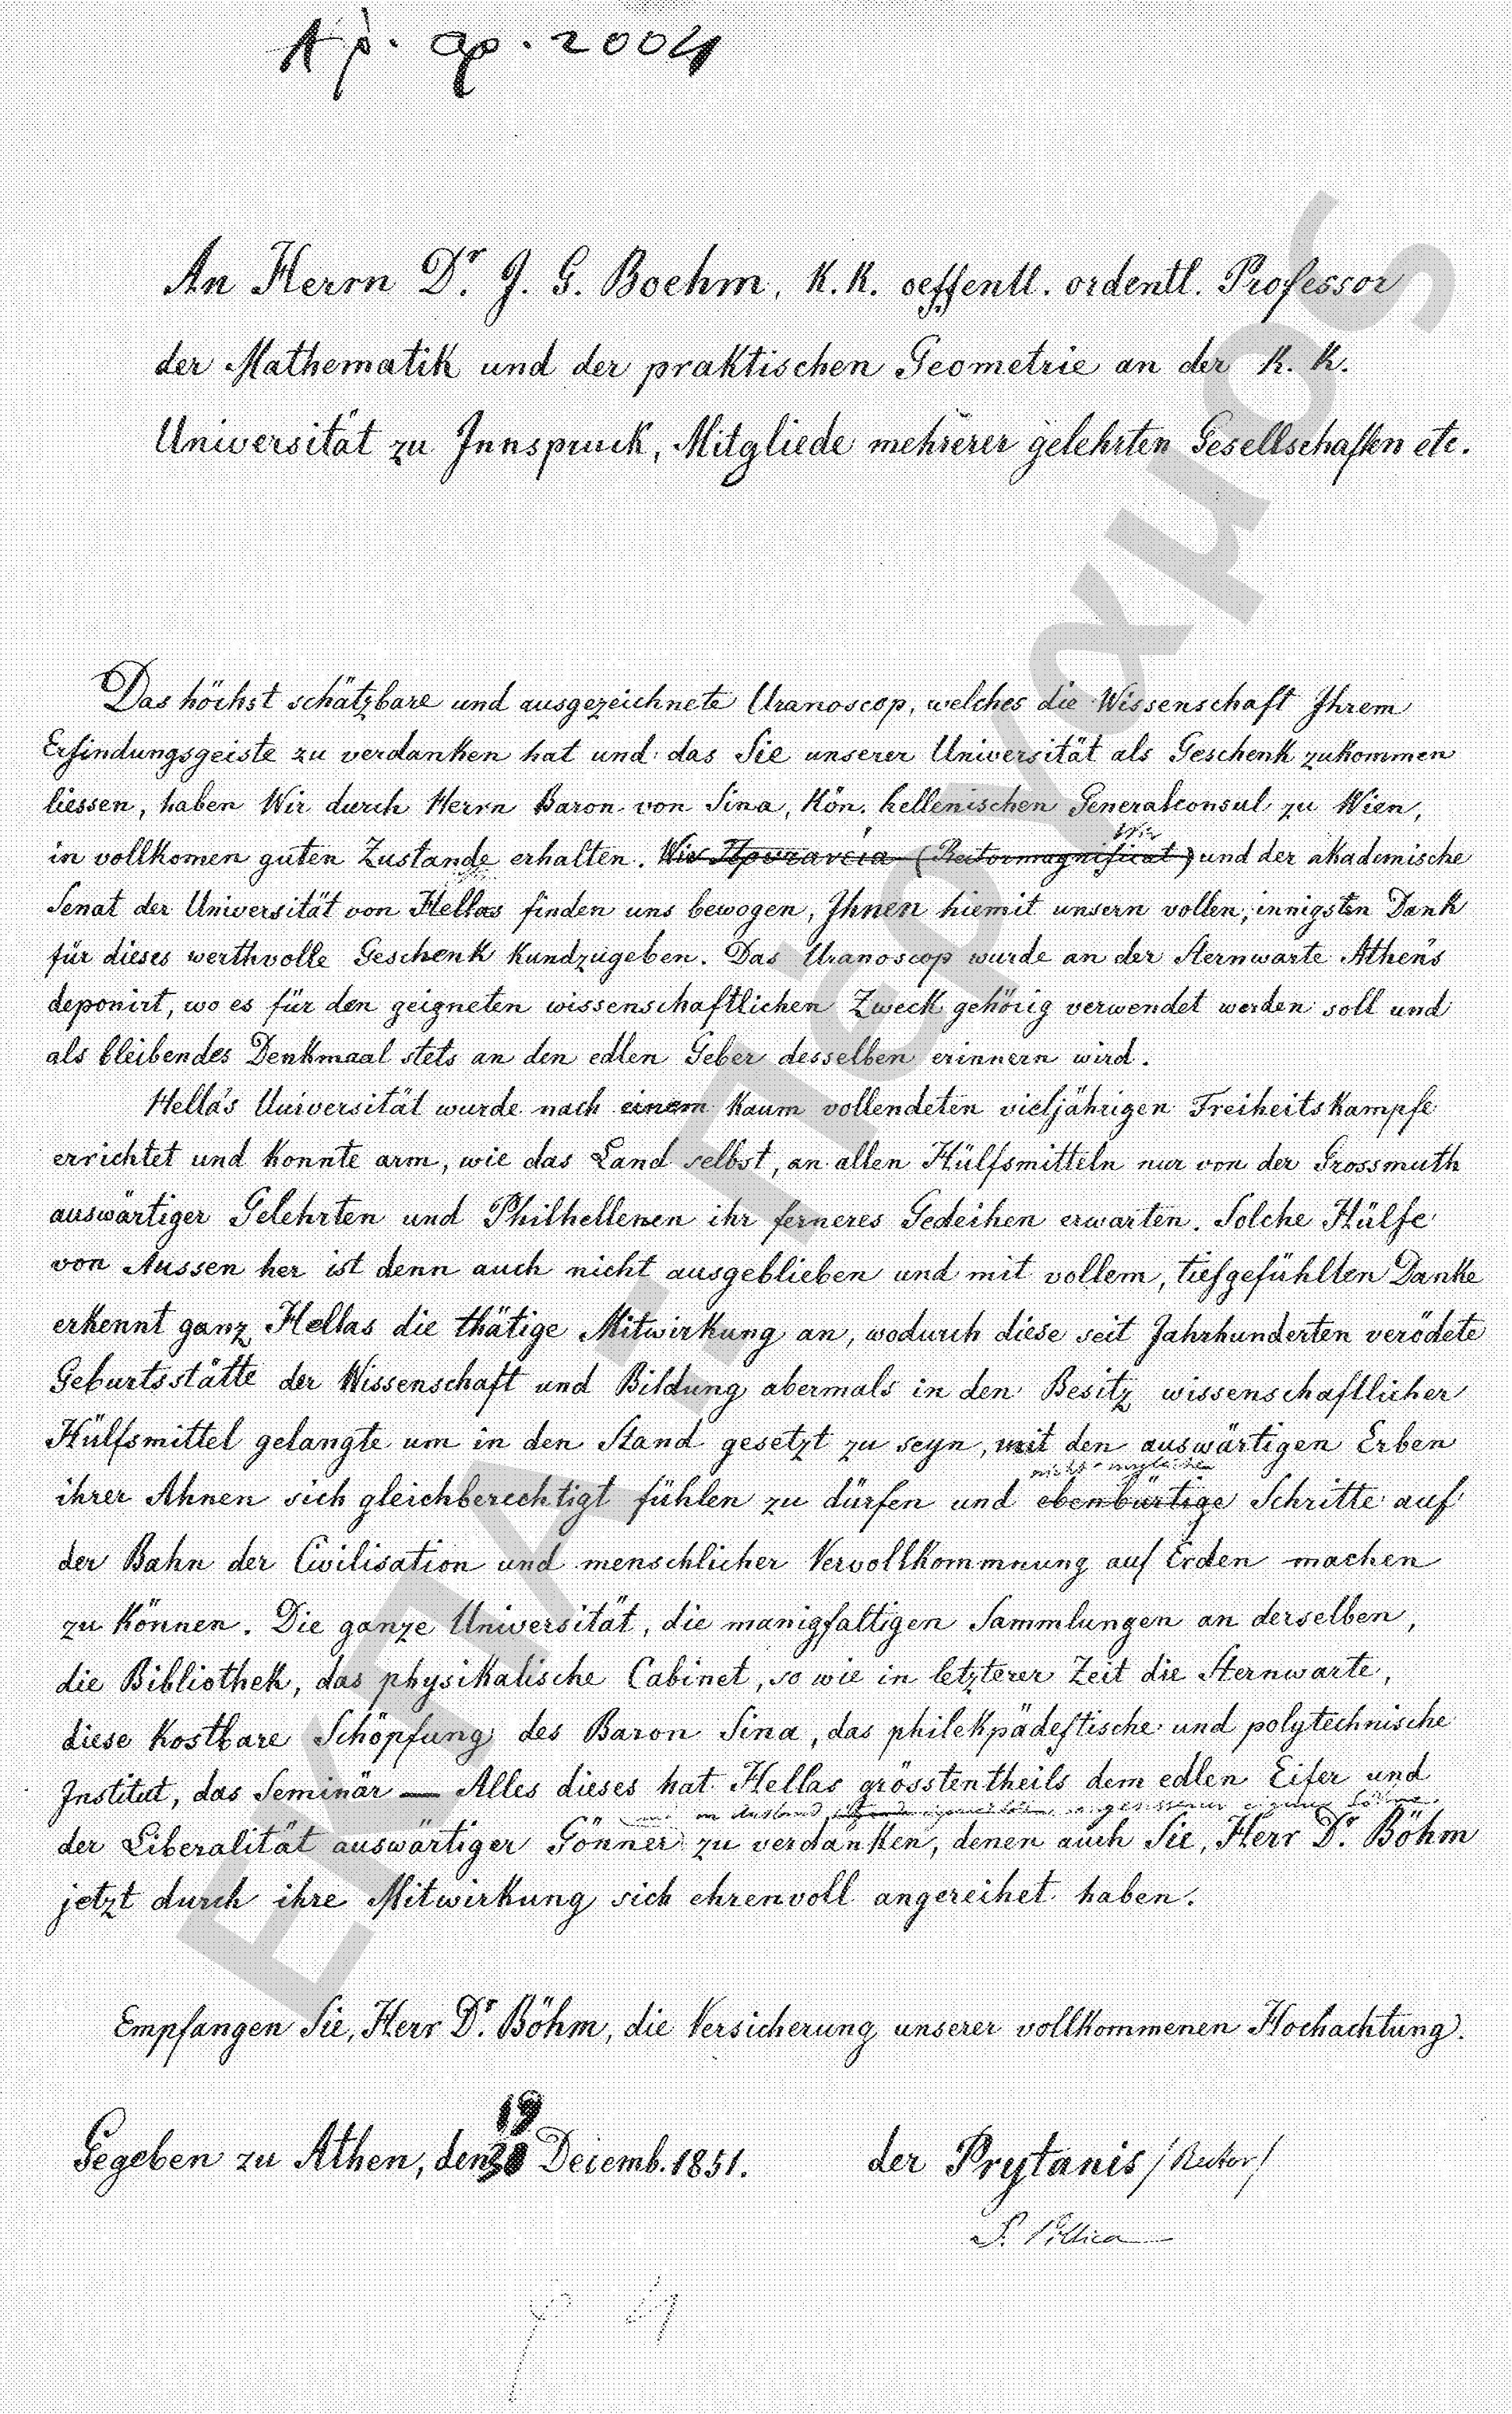 Αρ. αρ. 2004
An Herrn Dr. J. G. Boehm, K. K. oeffentl. ordentl. Professor
der Mathematik und der praktischen Geometrie an der K. K.
Universität zu Innspruck, Mitgliede mehrerer gelehrten Gesellschaften etc.
Das höchst schätzbare und ausgezeichnete Uranoscop, welches die Wissenschaft Ihrem
Erfindungsgeiste zu verdanken hat und das Sie unserer Universität als Geschenk zukommen
liessen, haben Wir durch Herrn Baron von Sina, Kön. hellenischen Generalconsul zu Wien,
Wir
in vollkomen guten Zustande erhalten. Wir Πρυτανεία (Rectormagnificat) und der akademische
Senat der Universität von Hellas finden uns bewogen, Ihnen hiemit unsern vollen, innigsten Dank
für dieses werthvolle Geschenk kundzugeben. Das Uranoscop wurde an der Sternwarte Athen's
deponirt, wo es für den geigneten wissenschaftlichen Zweck gehörig verwendet werden soll und
als bleibendes Denkmaal stets an den edlen Geber desselben erinnern wird.
Hella's Universität wurde nach einem kaum vollendeten vieljährigen Freiheitskampfe
errichtet und konnte arm, wie das Land selbst, an allen Hülfsmitteln nur von der Grossmuth
auswärtiger Gelehrten und Philhellenen ihr ferneres Gedeihen erwarten. Solche Hülfe
von Aussen her ist denn auch nicht ausgeblieben und mit vollem, tiefgefühlten Danke
erkennt ganz Hellas die thätige Mitwirkung an, wodurch diese seit Jahrhunderten verödete
Geburtsstätte der Wissenschaft und Bildung abermals in den Besitz wissenschaftlicher
Hülfsmittel gelangte um in den Stand gesetzt zu seyn, mit den auswärtigen Erben
ihrer Ahnen sich gleichberechtigt fühlen zu dürfen und ebenbürtige Schritte auf
der Bahn der Civilisation und menschlicher Vervollkommnung auf Erden machen
zu können. Die ganze Universität, die manigfaltigen Sammlungen an derselben,
die Bibliothek, das physikalische Cabinet, so wie in letzterer Zeit die Sternwarte,
diese kostbare Schöpfung des Baron Sina, das philekpädeftische und polytechnische
Institut, das Seminär — Alles dieses hat Hellas grösstentheils dem edlen Eifer und
der Liberalität auswärtiger Gönner zu verdanken, denen auch Sie, Herr Dr. Böhm
jetzt durch ihre Mitwirkung sich ehrenvoll angereihet haben.
Empfangen Sie, Herr Dr. Böhm, die Versicherung unserer vollkommenen Hochachtung.
19
Gegeben zu Athen, den 30 Decemb. 1851.
der Prytanis /Rector/
S. Pillica
ΕΚΠΑ - Πέργαμος